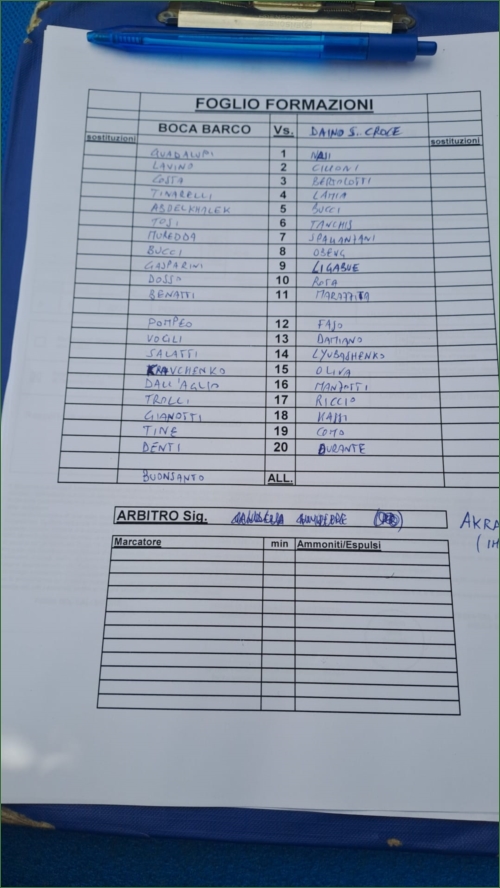 FOGLIO FORMAZIONI
sostituzioni BOCA BARCO Vs. DAINO S. CROCE sostituzioni
GUADALUPI 1 NASI
LAVINO 2
COSTA 3 BERTOLOTTI
TINARELLI 4 LAMIA
ABDELKHALEK 5 BUCCI
TOSI 6
MUREDDA 7 SPALLANZANI
BUCCI 8 OBENG
GASPARINI 9 LIGABUE
DOSSO 10 ROTA
BENATTI 11
POMPEO 12
VOGLI 13 DAMIANO
SALATTI 14 LYUBASHENKO
KRAVCHENKO 15 OLIVA
DALL'AGLIO 16
TROLLI 17 RICCIO
GIANOTTI 18
TINE 19 COMO
DENTI 20 DURANTE
BUONSANTO ALL.
ARBITRO Sig.
AKRA
(IH
Marcatore min Ammoniti/Espulsi